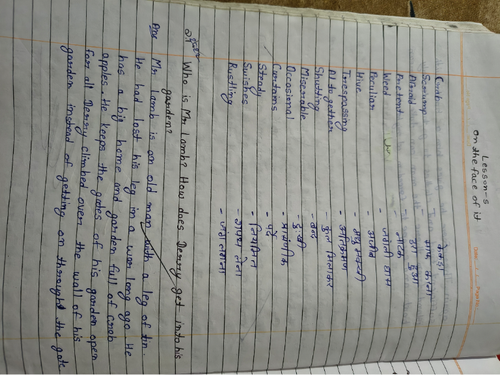 Lesson-5
on the face of it.
Crab - केकड़ा
Swamp
Afraid - डरा हुआ
Pretend
Weed - जंगली घास
Peculiar - अजीब
Hive
Trespassing - अतिक्रमण
Al together - कुल मिलाकर
Shutting - बन्द
Miserable - दुःखी
Occasional - प्रासंगिक
Curtains - पर्दे
Steady
Swishes
Rustling
Who is Mr. Lamb? How does Derry get into his
garden?
Ans Mr Lamb is an old man with a leg of tin.
He had lost his leg in a war long ago He
has a big home and garden full of crab
apples. He keeps the gates of his garden open
for all Derry climbed over the wall of his
garden instead of getting on throught the gate